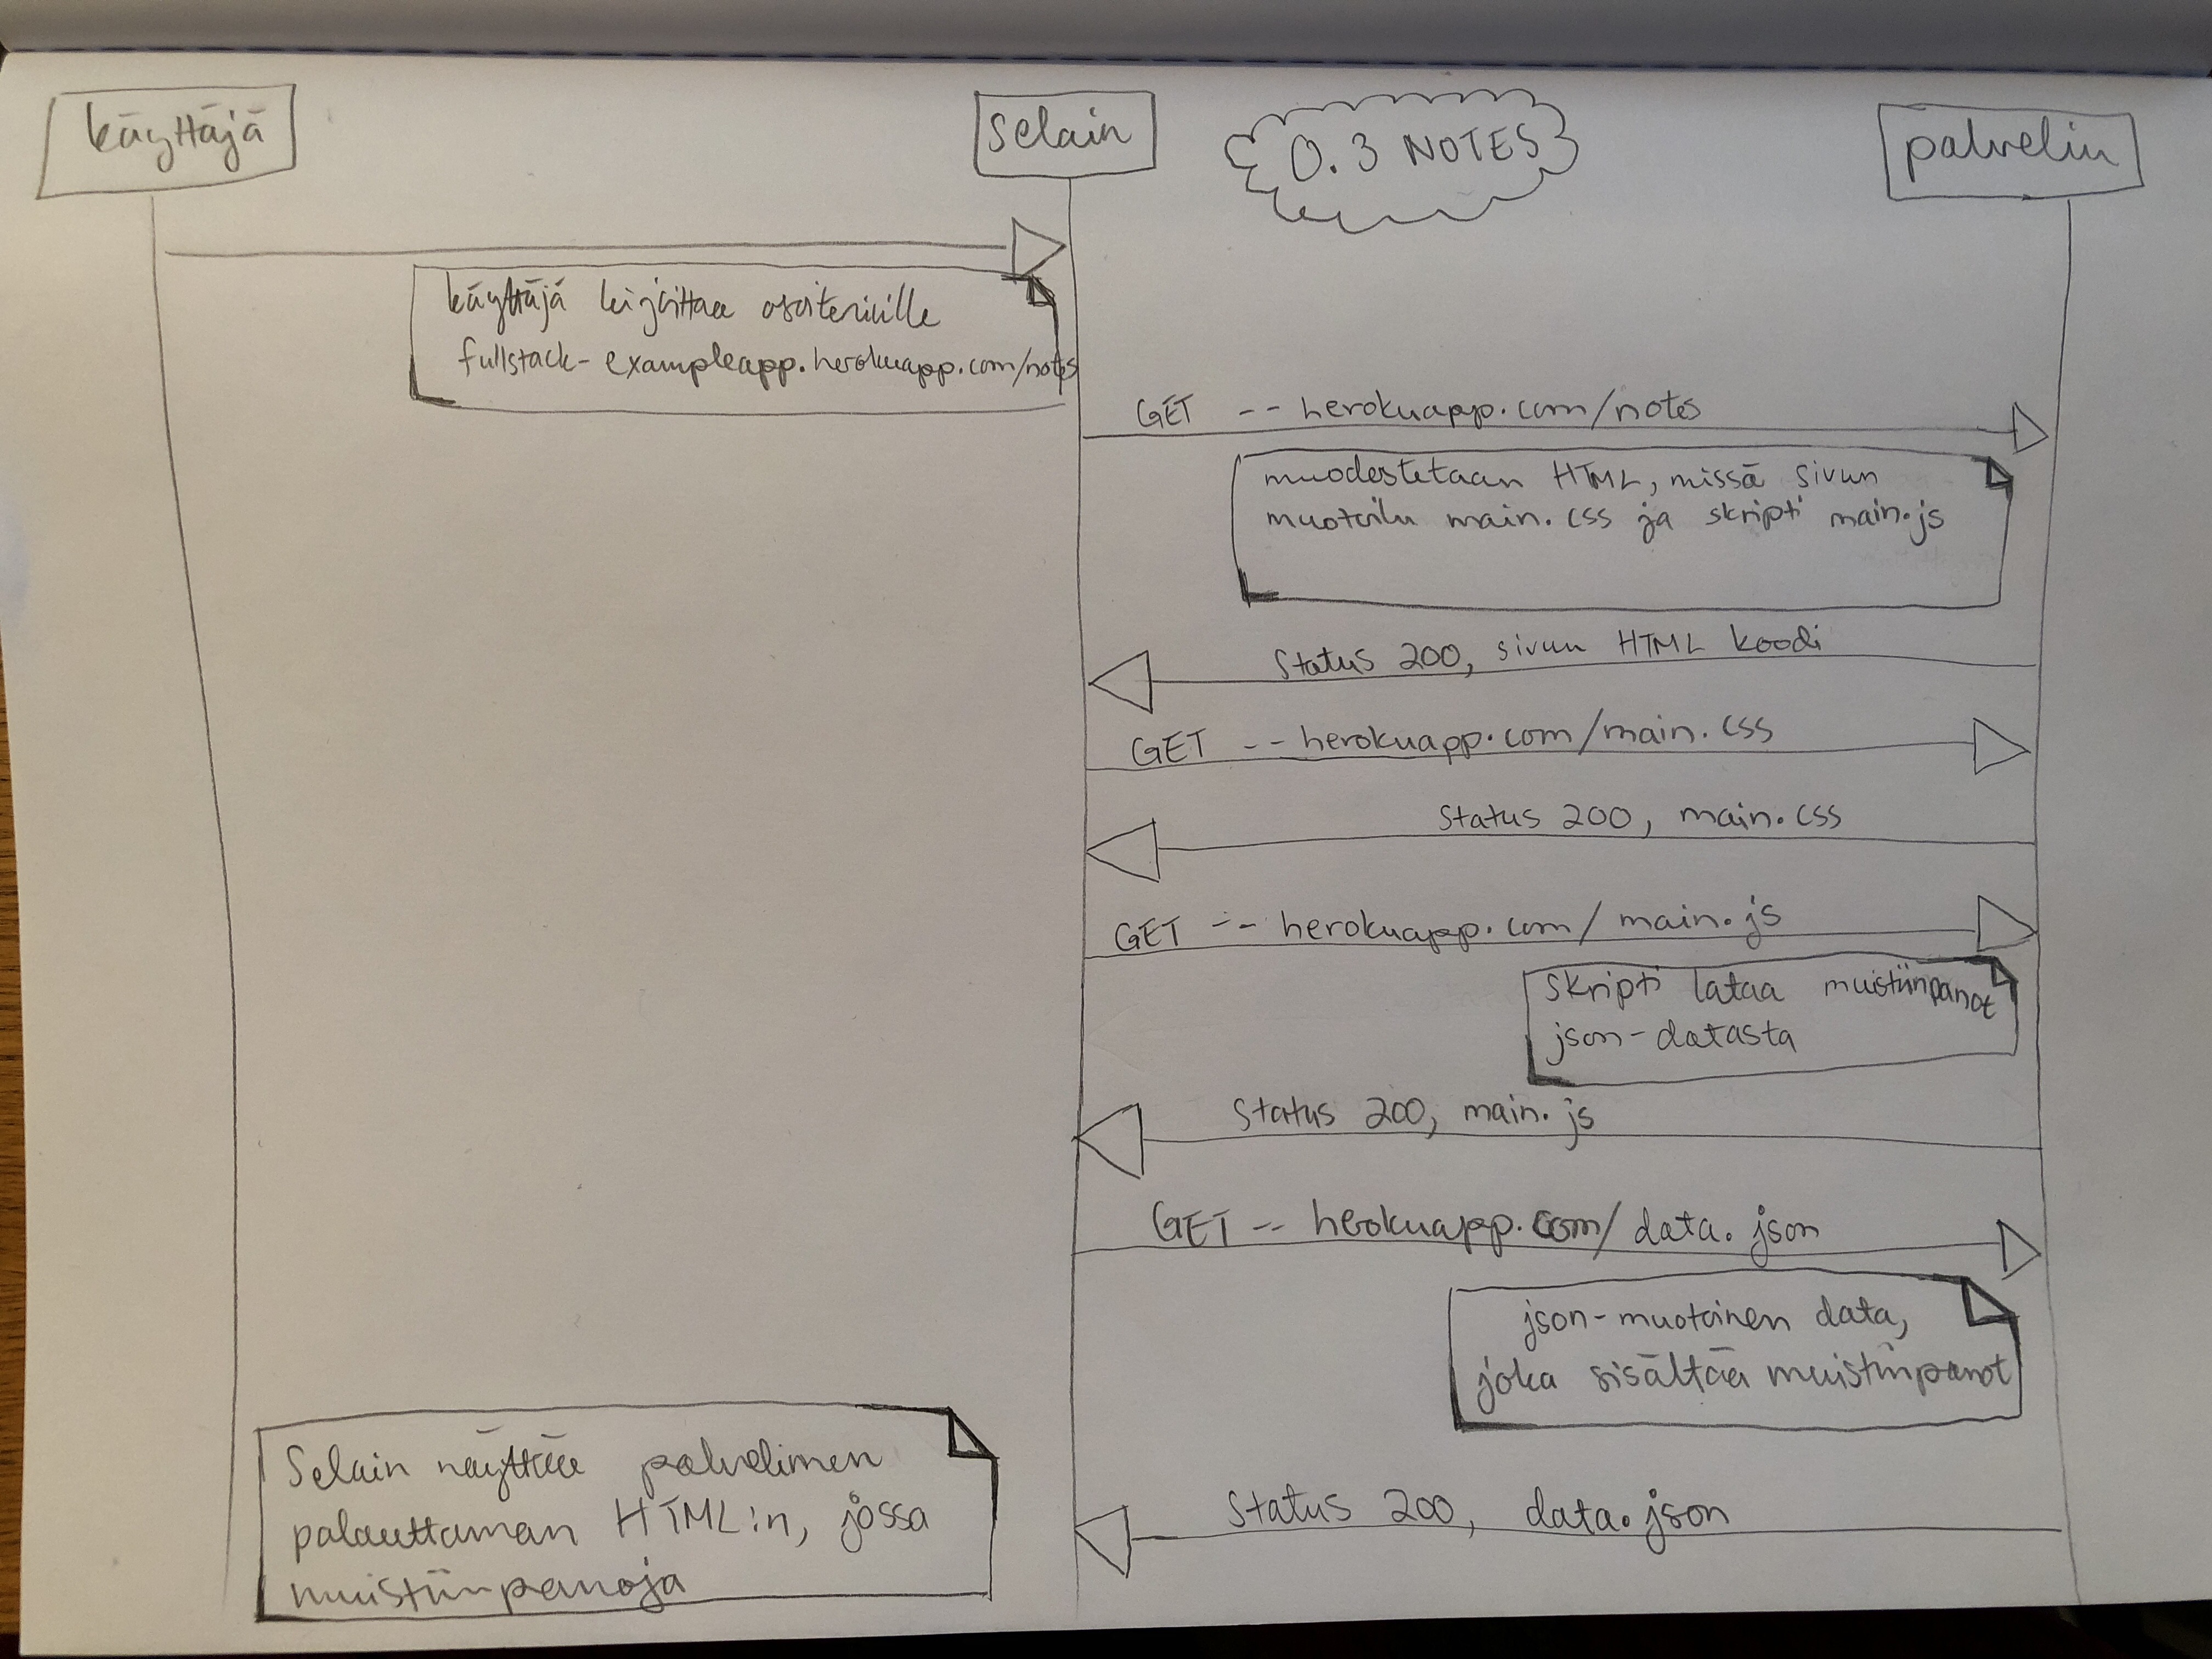 käyttäjä
selain
0.3 NOTES
palvelin
käyttäjä kirjoittaa osoiteriville
fullstack-exampleapp.herokuapp.com/notes
GET --herokuapp.com/notes
muodostetaan HTML, missä sivun
muotoilu main.css ja skripti main.js
Status 200, sivun HTML koodi
GET --herokuapp.com/main.css
Status 200, main.css
GET --herokuapp.com/main.js
Skripti lataa muistiinpanot
json-datasta
Status 200, main.js
GET --herokuapp.com/data.json
json-muotoinen data,
joka sisältää muistiinpanot
Status 200, data.json
Selain näyttää palvelimen
palauttaman HTML:in, jossa
muistiinpanoja